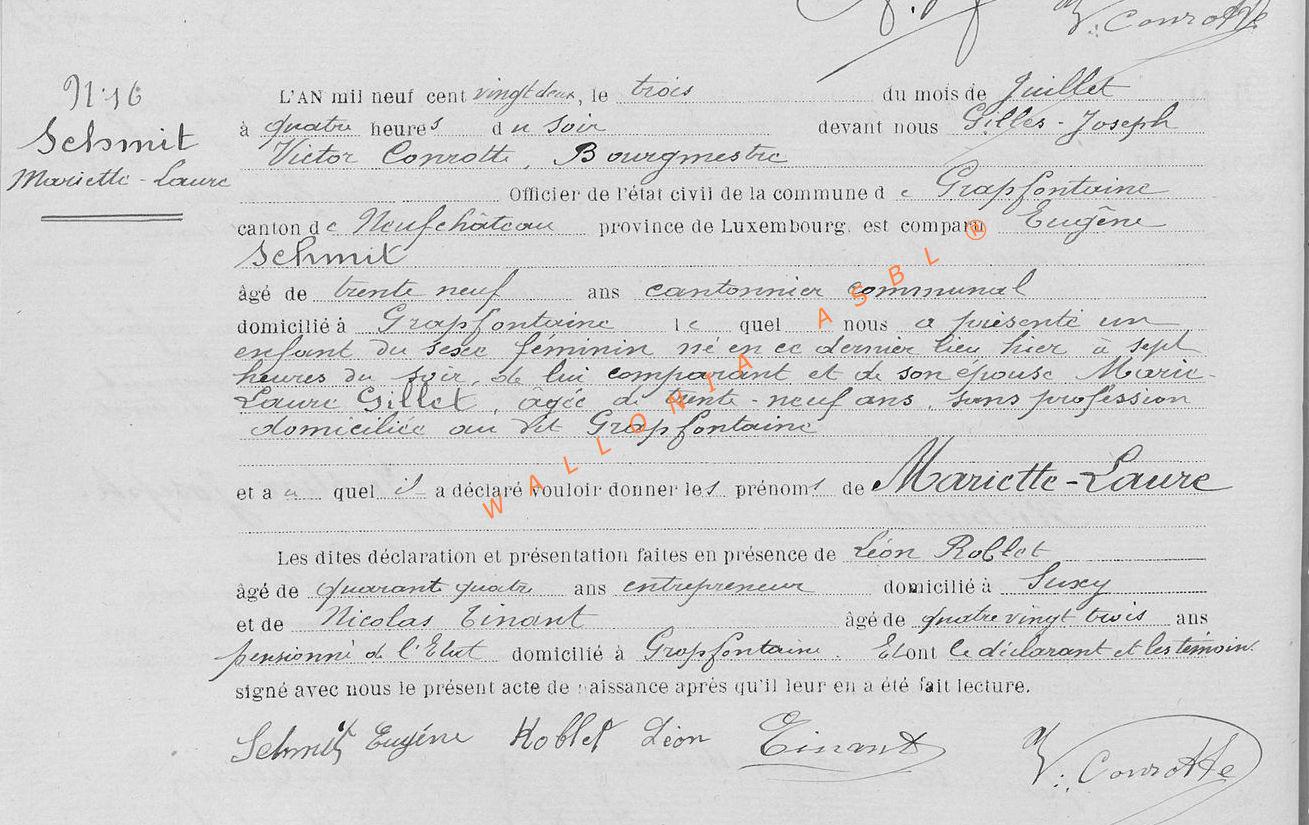 V. Conrotte
N° 16
Schmit
Mariette-Laure
L'AN mil neuf cent vingt deux, le trois du mois de Juillet
à quatre heures du soir devant nous Gilles-Joseph
Victor Conrotte, Bourgmestre
Officier de l'état civil de la commune de Grapfontaine
canton de Neufchâteau province de Luxembourg. est comparu Eugène
Schmit
âgé de trente neuf ans cantonnier communal
domicilié à Grapfontaine lequel nous a présenté un
enfant du sexe féminin né en ce dernier lieu hier à sept
heures du soir, de lui comparant et de son épouse Marie-
Laure Gillet, âgée de trente-neuf ans, sans profession
domiciliée au dit Grapfontaine
et a quel il a déclaré vouloir donner les prénoms de Mariette-Laure
Les dites déclaration et présentation faites en présence de Léon Roblet
âgé de quarante quatre ans entrepreneur domicilié à Suxy
et de Nicolas Tinant âgé de quatre vingt trois ans
pensionné de l'Etat domicilié à Grapfontaine. Et ont le déclarant et les témoins
signé avec nous le présent acte de naissance après qu'il leur en a été fait lecture.
Schmit Eugène Roblet Léon Tinant V. Conrotte
WALLONIA ASBL ®